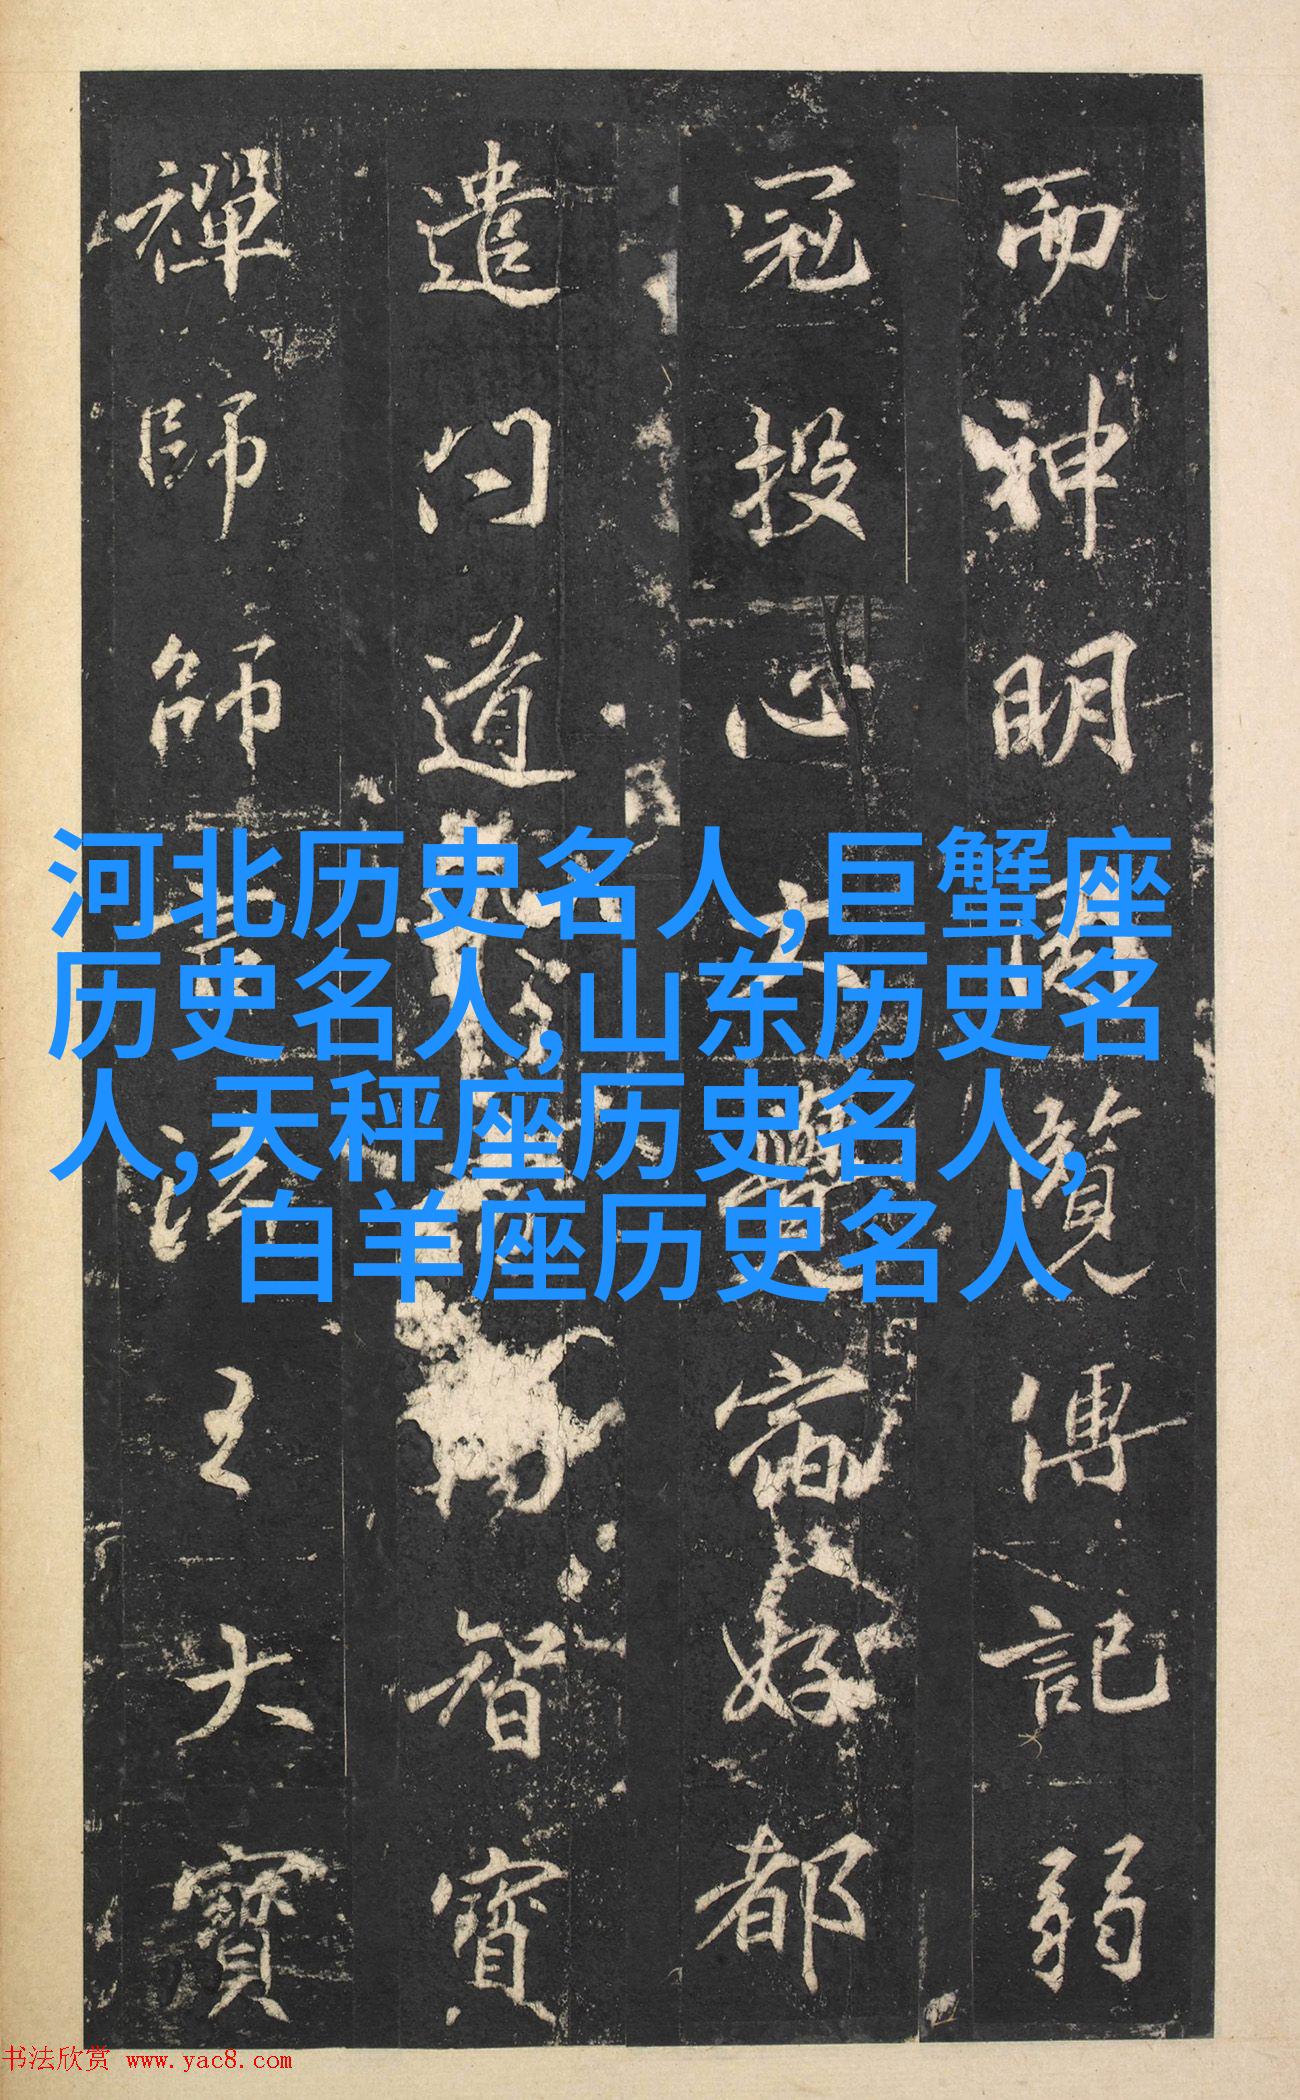 而神明 閱覽傳記弱
冠投心 大覺宿好都
遣問道 智寶
禪師師 法王大寶
河北历史名人,巨蟹座
历史名人,山东历史名
人,天秤座历史名人,
白羊座历史名人
书法欣赏 www.yac8.com